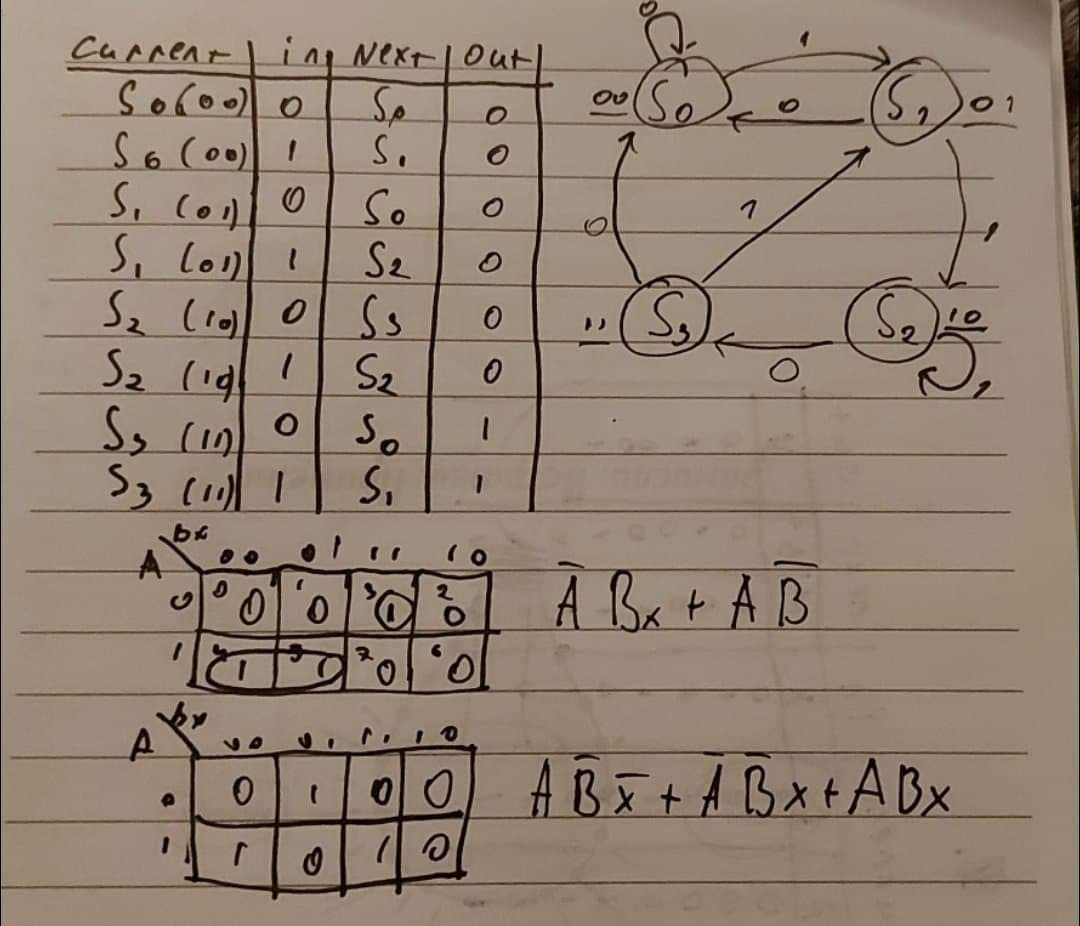 Current in Next Out
S0 (00) 0 S0 0
S0 (00) 1 S1 0
S1 (01) 0 S0 0
S1 (01) 1 S2 0
S2 (10) 0 S3 0
S2 (10) 1 S2 0
S3 (11) 0 S0 1
S3 (11) 1 S1 1
0
1
00 S0
0
S1 01
0
1
1
11 S3
0
S2 10
1
A Bx 00 01 11 10
0 0 0 1 0 3 1 2 0
1 4 1 5 1 7 0 6 0
A̅ Bx + A B̅
A Bx 00 01 11 10
0 0 1 0 0
1 1 0 1 0
A B̅ x̅ + A̅ B̅ x + A B x